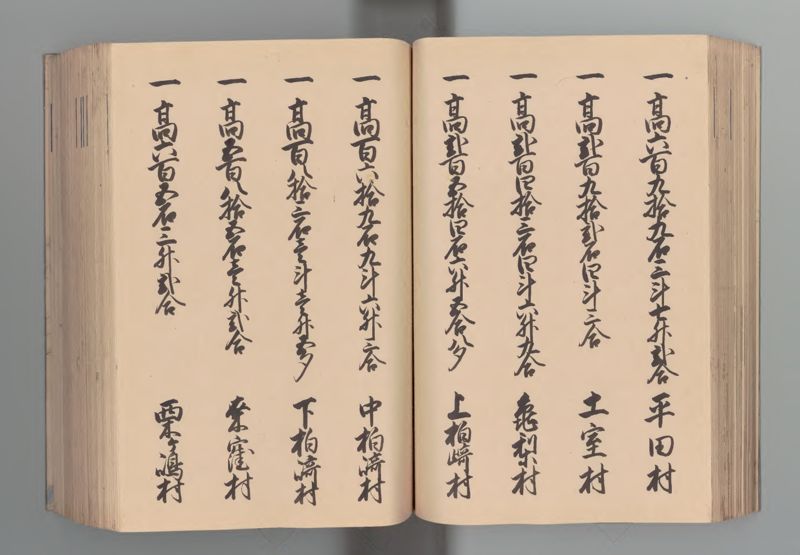 一 高六百九拾九石三斗七升弐合 平田村
一 高弐百九拾弐石四斗三合 土室村
一 高弐百四拾三石四斗六升九合 亀梨村
一 高弐百五拾四石六升五合八夕 上柏崎村
一 高百六拾九石九斗六升三合 中柏崎村
一 高百八拾三石壱斗壱升五夕 下柏崎村
一 高五百八拾五石壱升弐合 窪村
一 高六百五石三升弐合 栗ヶ嶋村